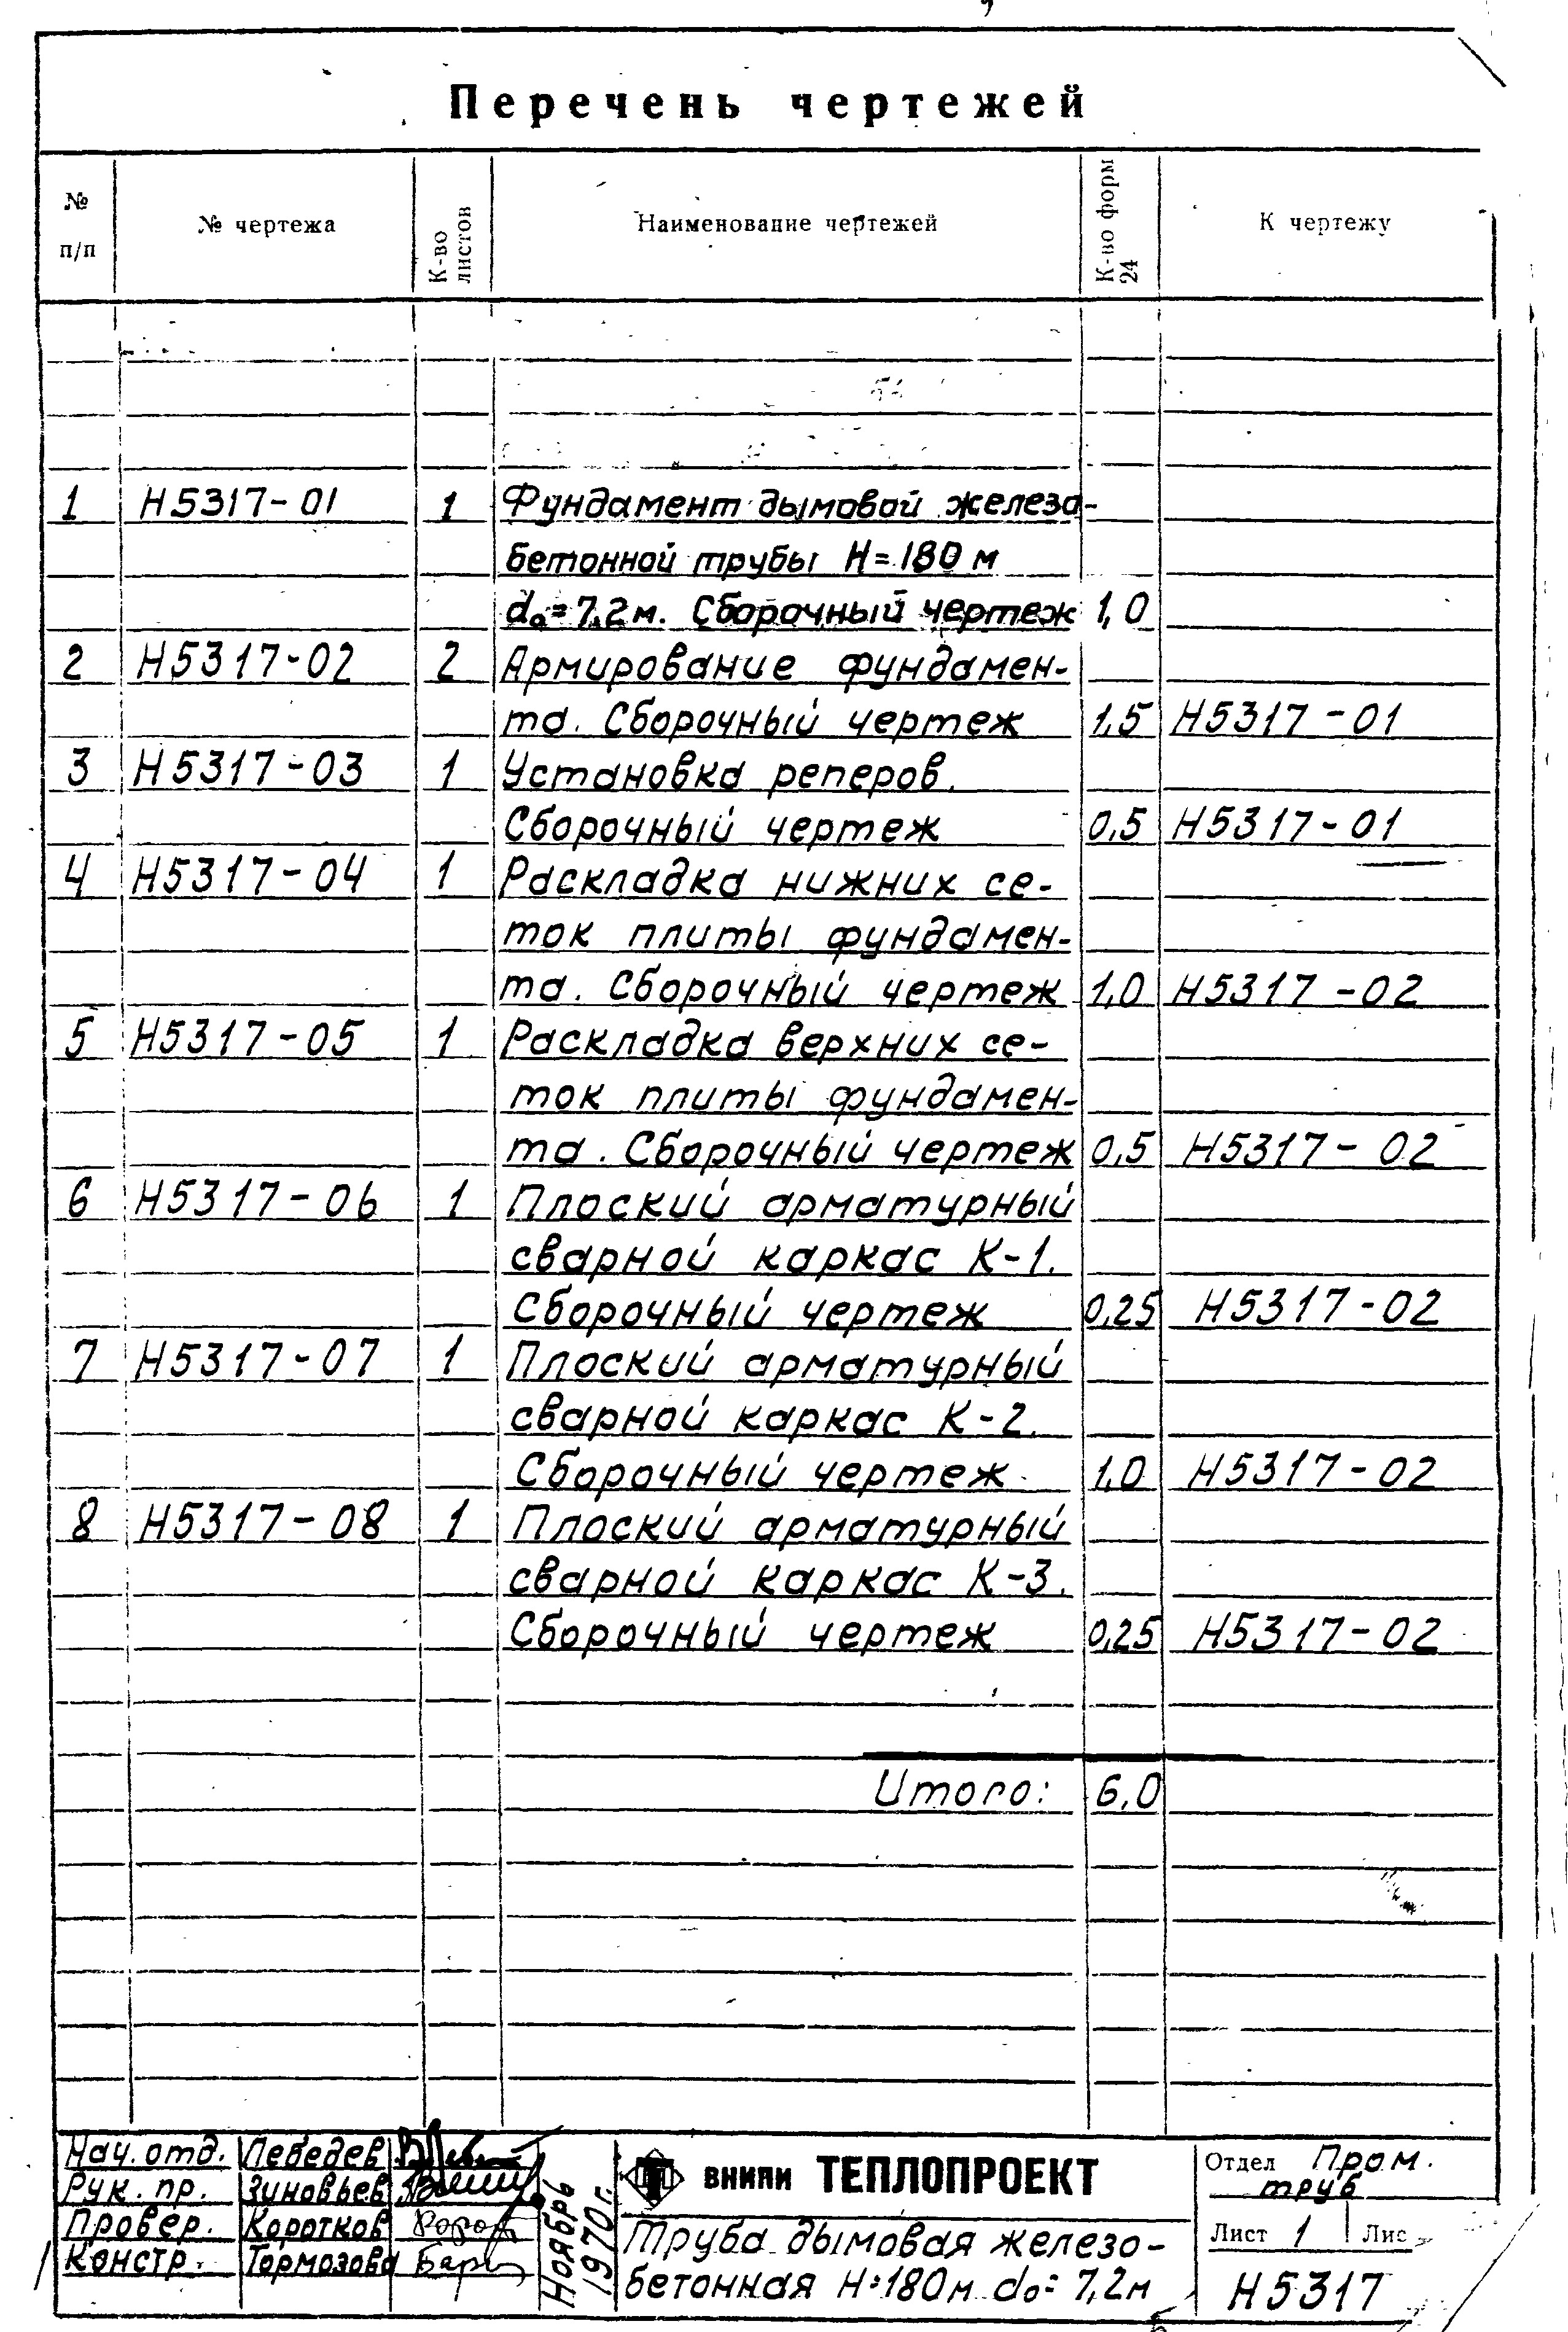 Перечень чертежей
№ п/п
№ чертежа
К-во листов
Наименование чертежей
К-во форм 24
К чертежу
1 Н5317-01 1 Фундамент дымовой железо-
бетонной трубы Н=180 м
do=7,2м. Сборочный чертеж 1,0
2 Н5317-02 2 Армирование фундамен-
та. Сборочный чертеж 1,5 Н5317-01
3 Н5317-03 1 Установка реперов.
Сборочный чертеж 0,5 Н5317-01
4 Н5317-04 1 Раскладка нижних се-
ток плиты фундамен-
та. Сборочный чертеж 1,0 Н5317-02
5 Н5317-05 1 Раскладка верхних се-
ток плиты фундамен-
та. Сборочный чертеж 0,5 Н5317-02
6 Н5317-06 1 Плоский арматурный
сварной каркас К-1.
Сборочный чертеж 0,25 Н5317-02
7 Н5317-07 1 Плоский арматурный
сварной каркас К-2.
Сборочный чертеж 1,0 Н5317-02
8 Н5317-08 1 Плоский арматурный
сварной каркас К-3.
Сборочный чертеж 0,25 Н5317-02
Итого: 6,0
Нач. отд. Лебедев
Рук. пр. Зиновьев
Провер. Коротков
Констр. Тормозова
Ноябрь
1970г.
ВНИПИ ТЕПЛОПРОЕКТ
Труба дымовая железо-
бетонная Н=180м do=7,2м
Отдел Пром.
труб
Лист 1 Лис
Н5317